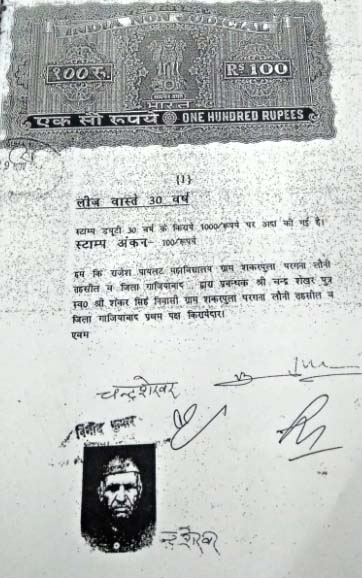 INDIA NON JUDICIAL
१००रु.
Rs 100
भारत
एक सौ रुपये
ONE HUNDRED RUPEES
(1)
लीज वास्ते 30 वर्ष
स्टाम्प ड्यूटी 30 वर्ष के किराये 1000/रूपये पर अदा की गई है।
स्टाम्प अंकन- 100/रूपये
हम कि राजेश पायलट महाविद्यालय ग्राम शकरपुला परगना लौनी
तहसील व जिला गाजियाबाद द्वारा प्रबन्धक श्री चन्द्र शेखर पुत्र
स्व0 श्री शंकर सिंह निवासी ग्राम शकरपुला परगना लौनी तहसील व
जिला गाजियाबाद प्रथम पक्ष किरायेदार।
एवम
चन्द्रशेखर
विनोद कुमार